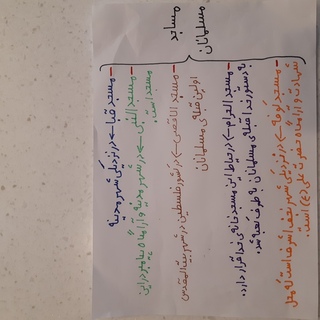 مساجد
مسلمانان
- مسجد قبا ← در نزدیکی شهر مدینه
- مسجد النبی ← در شهر مدینه و آرامگاه پیامبر در این
مسجد است.
- مسجد الاقصی ← در کشور فلسطین در شهر بیت المقدس
اولین قبله‌ی مسلمانان
- مسجد الحرام ← در حیاط این مسجد خانه‌ی خدا قرار دارد.
به دستور خدا قبله‌ی مسلمانان به طرف کعبه شد.
- مسجد کوفه ← در نزدیکی شهر نجف اشرف است که محل
شهادت و آرامگاه حضرت علی (ع) است.